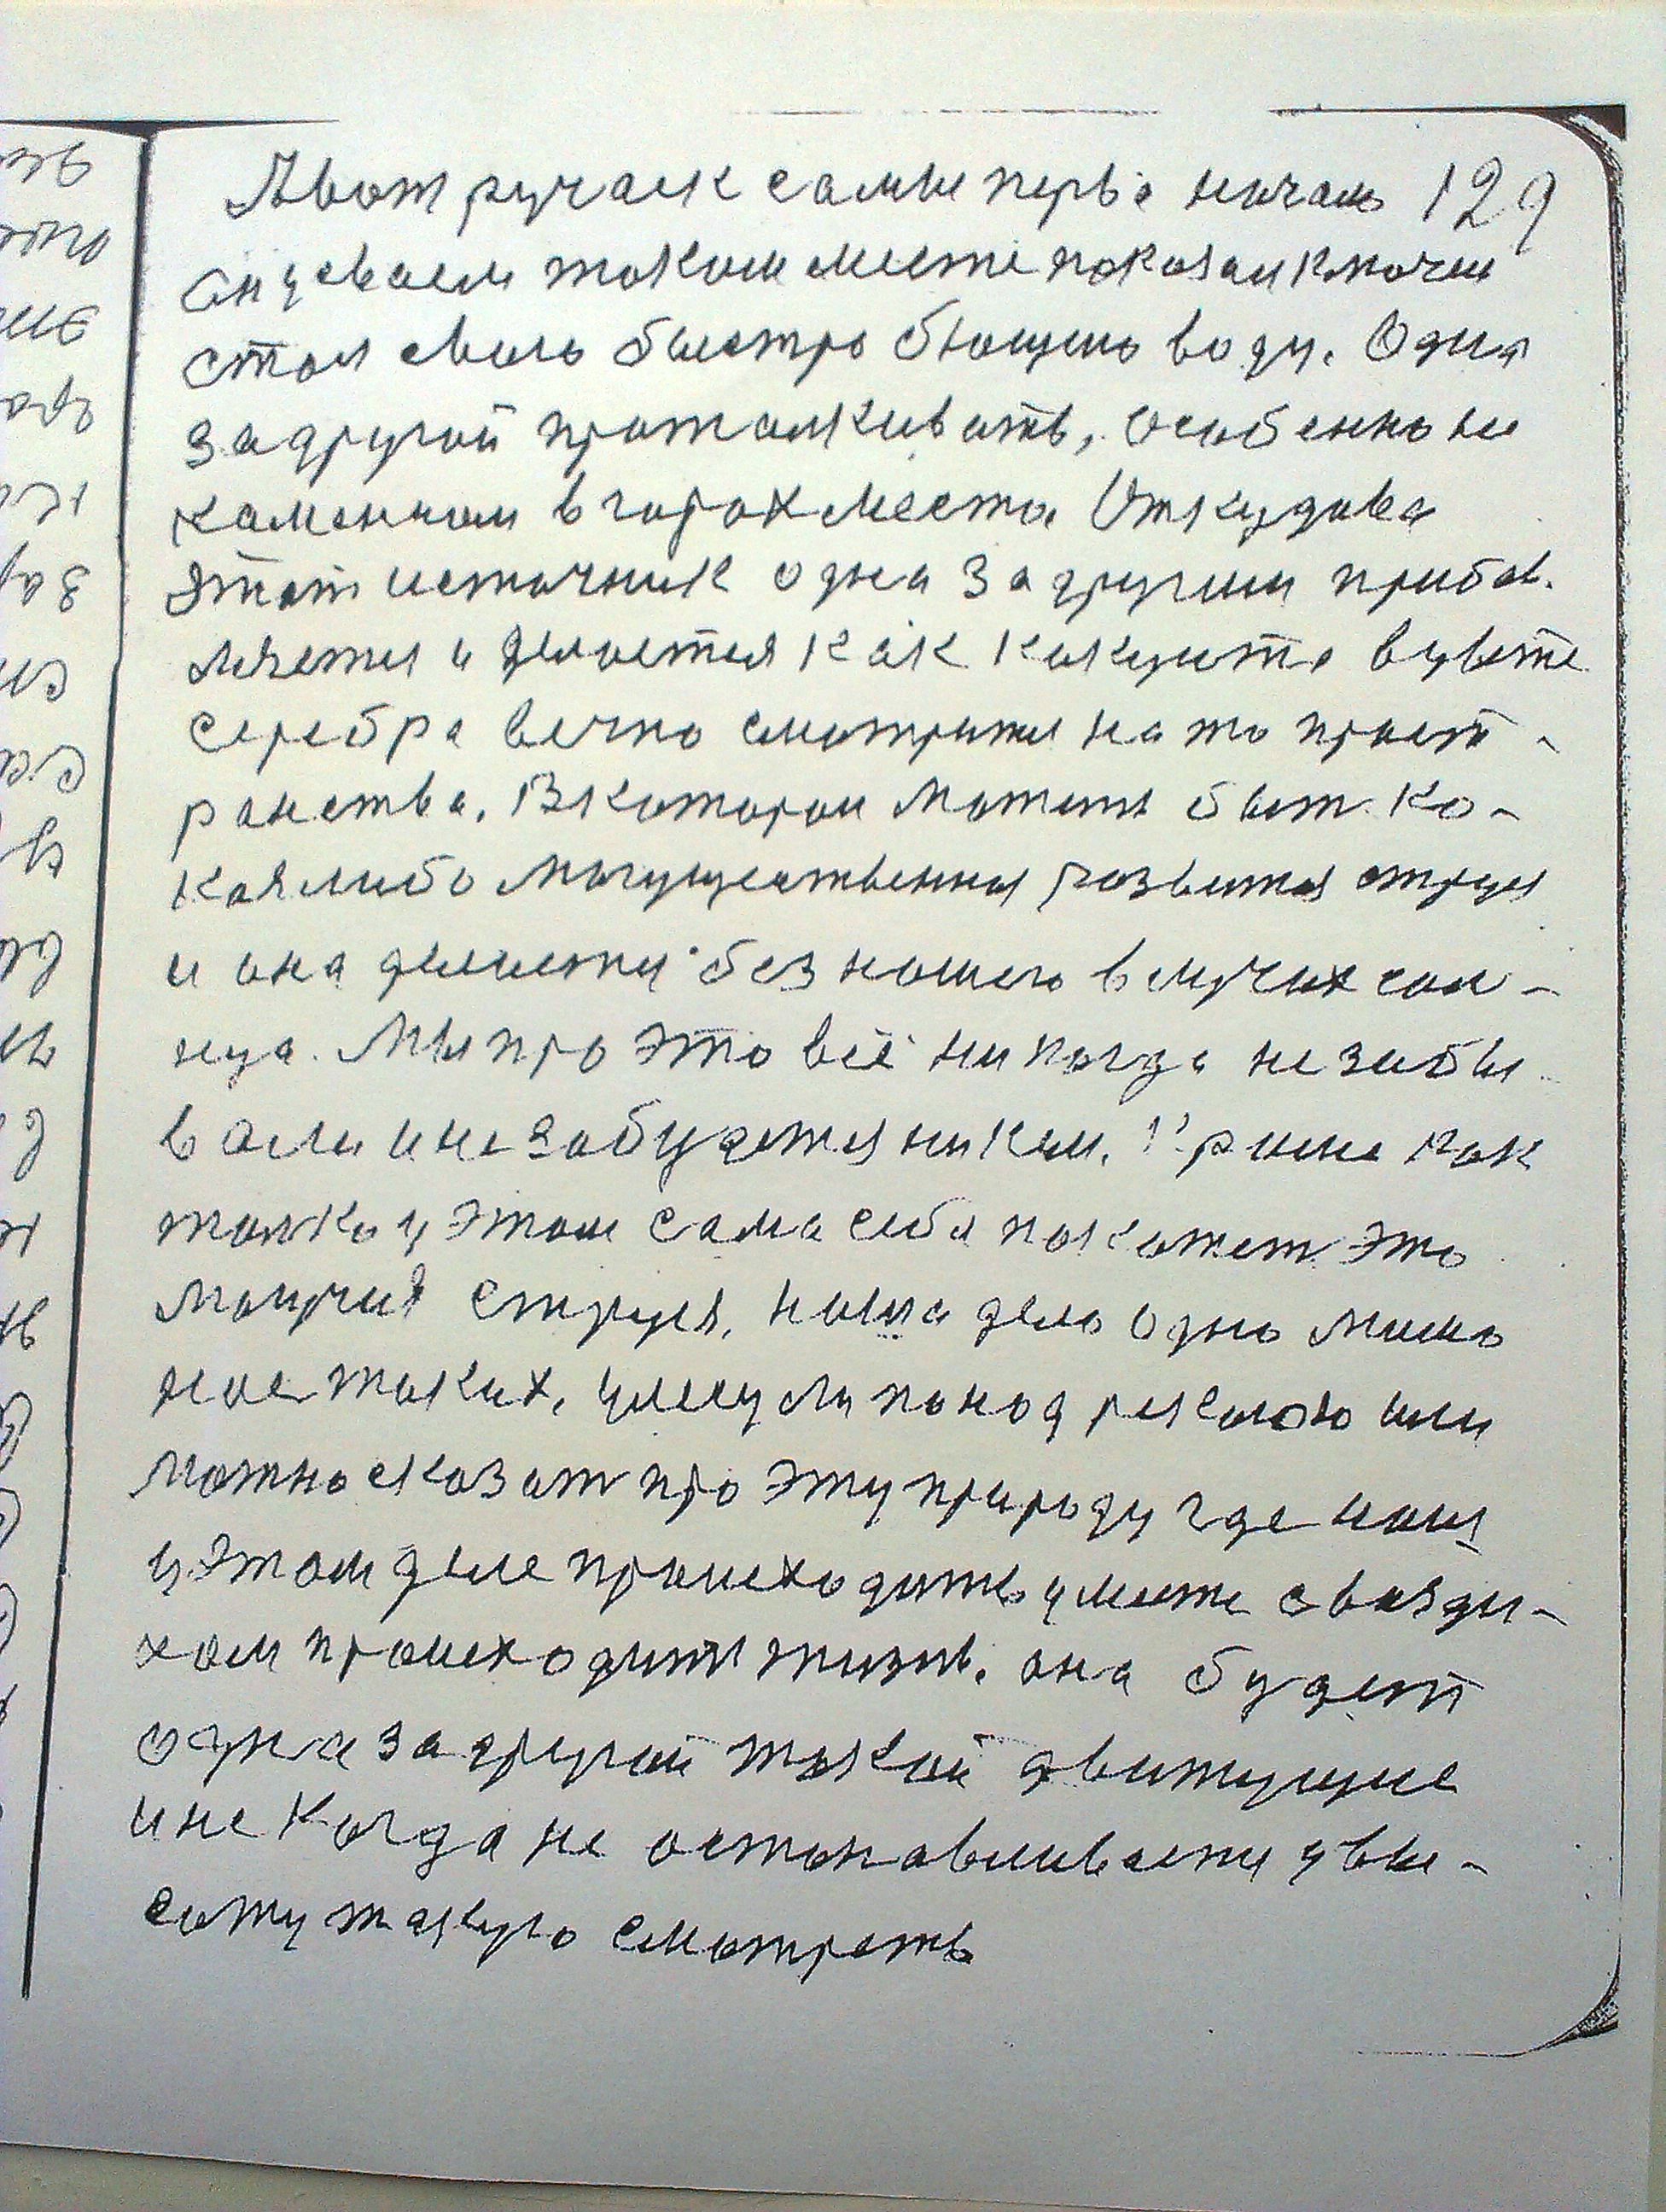 А вот ручаек самые первые начало 129
Он у своем таком месте показал ключем
стал свою быстро бющию воду. Одна
за другой проталкивать, особенно на
каменном в горах места. Откудова
этот источник одна за другим прибав-
ляется и делается как какуюто в цвете
серебра вечно смотрится на то прост-
ранства. В котором может быт ко-
каялибо могущественная развитая струя
и она делается без нашего в лучах сол-
нца. Мы про это всё никогда не забы-
вали и не забудется никем. Время как
толко у этом сама себя покажет это
могучия струя, наша дело одно мимо
нас таких,
можно сказат про эту природу где наш
у этом деле происходить у месте с возду-
хом происходит жизнь. она будет
одна за другой такой движущие
и не когда не останавливается у вы-
соту такую смотреть